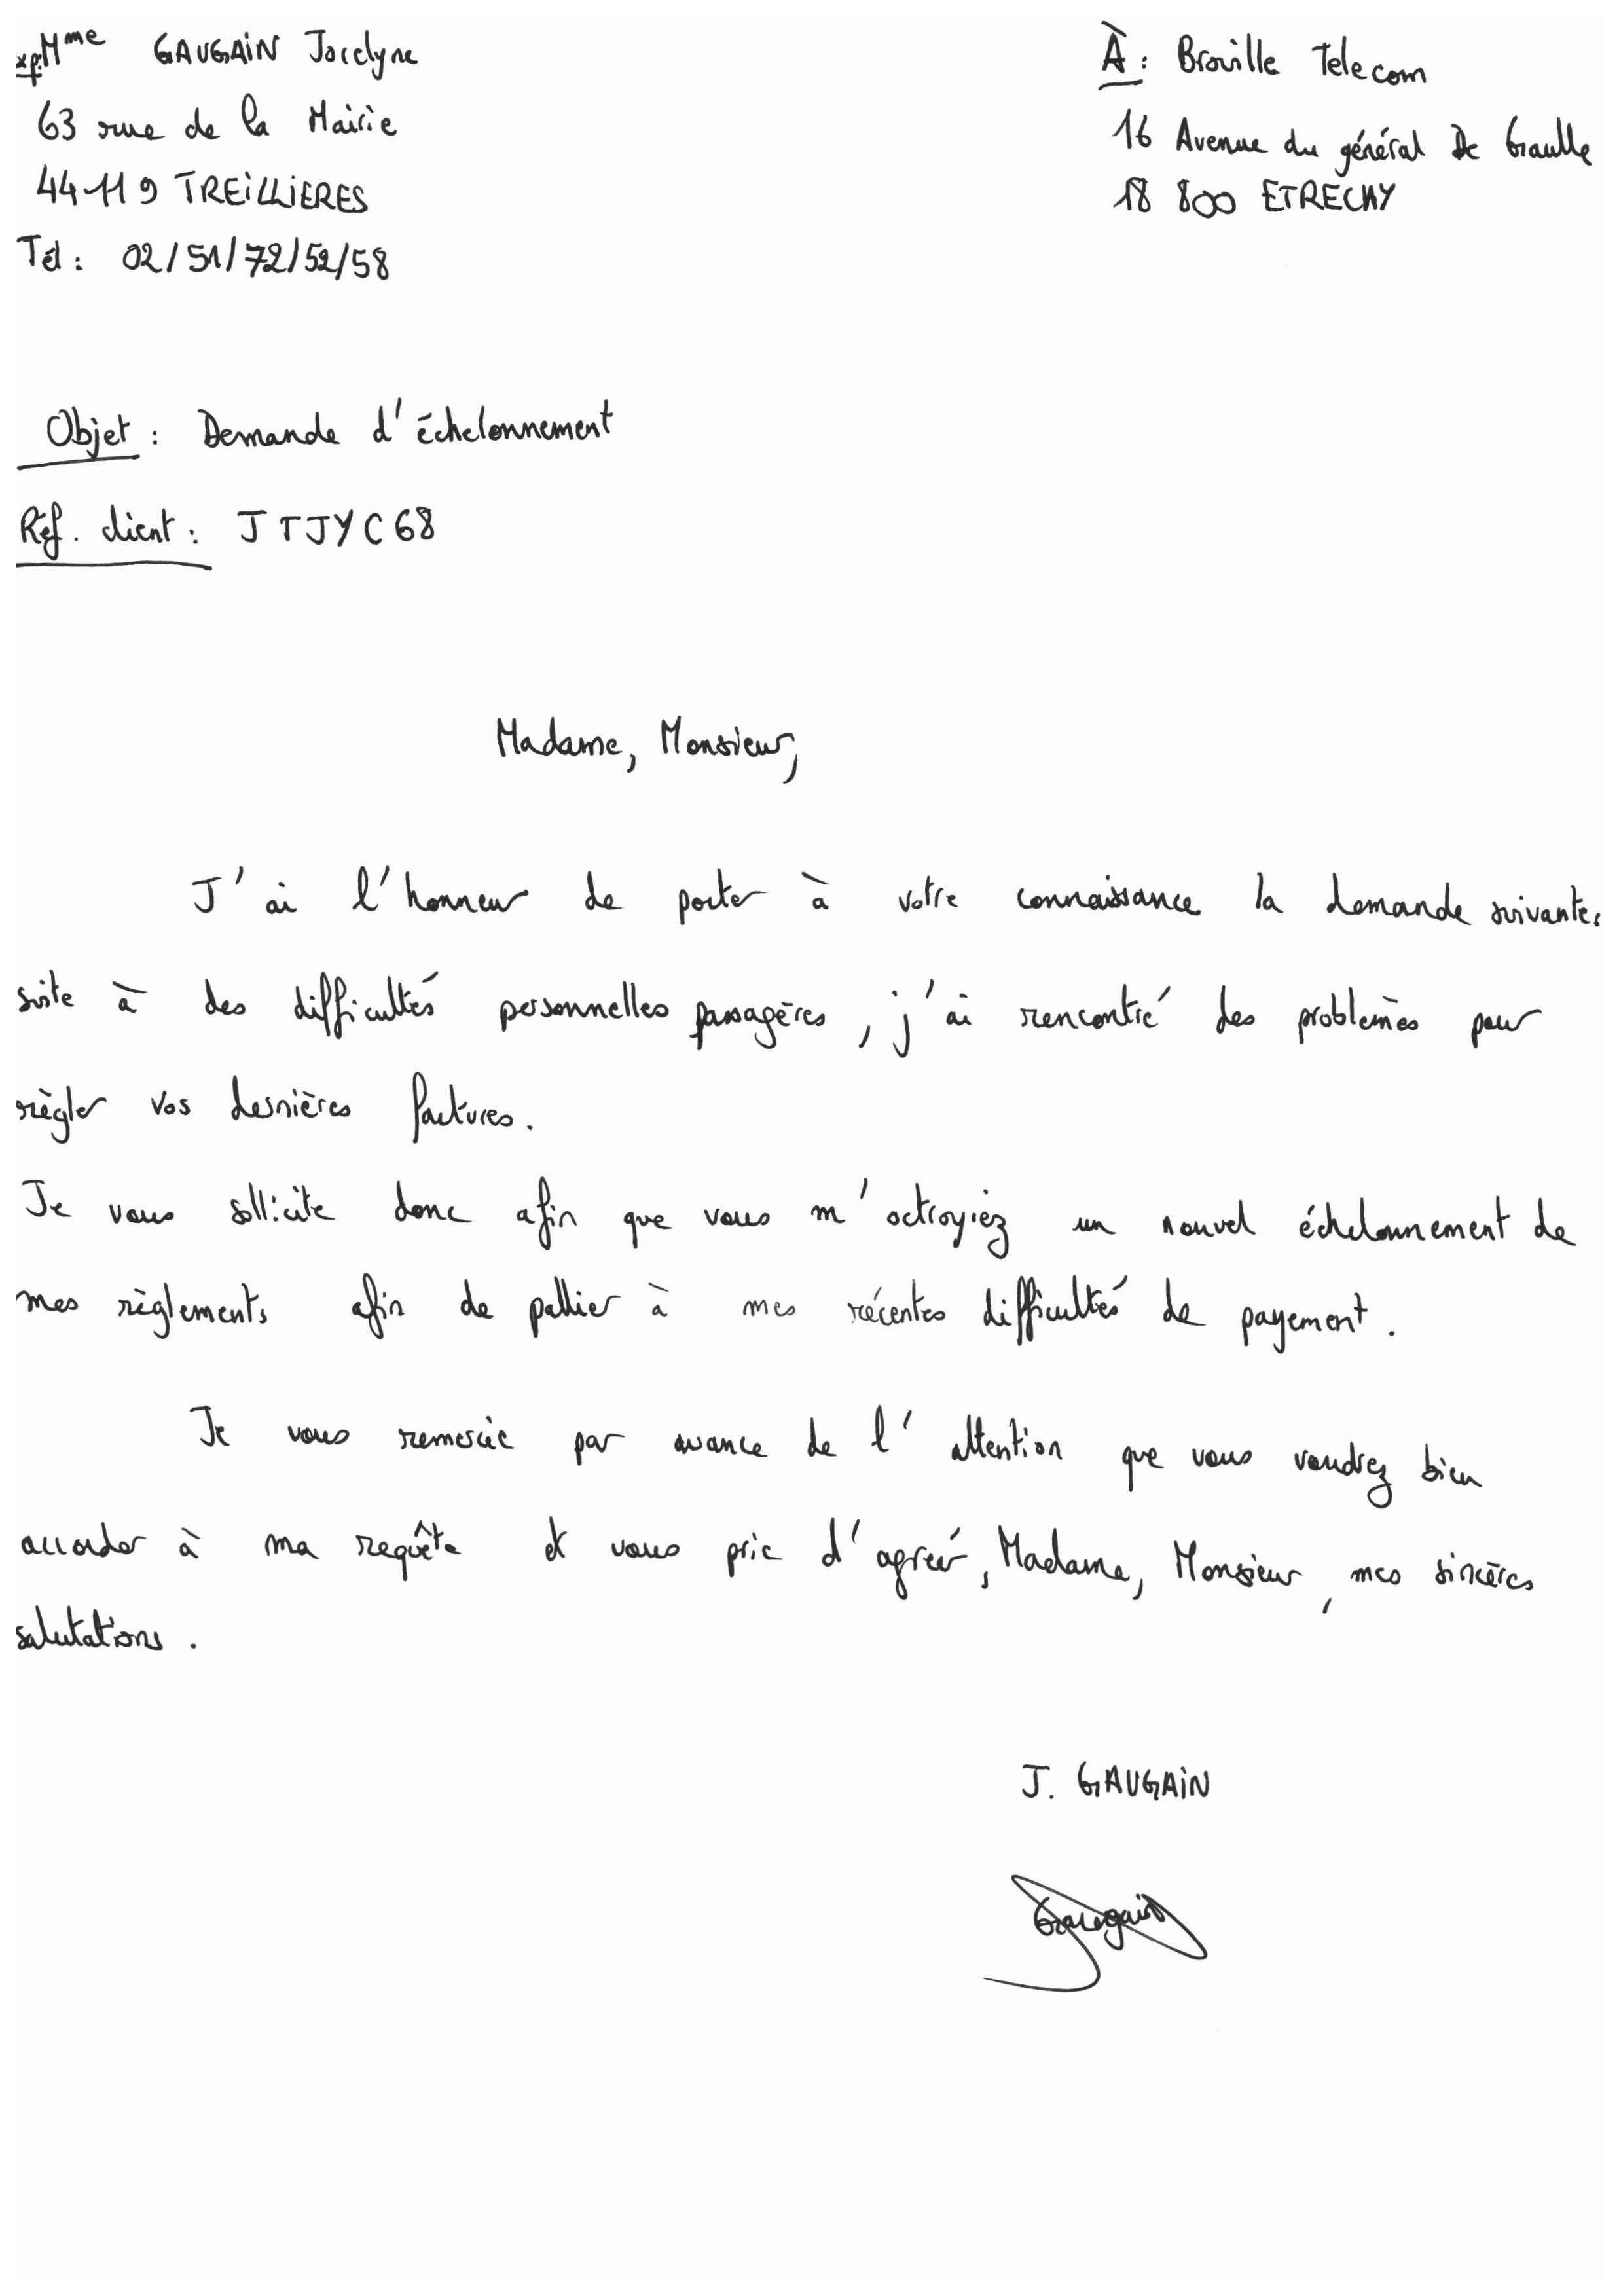 xp: Mme GAUGAIN Jocelyne
63 rue de la Mairie
44119 TREILLIERES
Tél : 02/51/72/52/58
À : Brouille Telecom
16 Avenue du général De Gaulle
18 800 ETRECHY
Objet : Demande d'échelonnement
Réf. client : JTJYC68
Madame, Monsieur,
J'ai l'honneur de porter à votre connaissance la demande suivante.
suite à des difficultés personnelles passagères, j'ai rencontré des problèmes pour
règler vos dernières factures.
Je vous sollicite donc afin que vous m'octroyiez un nouvel échelonnement de
mes règlements afin de pallier à mes récentes difficultés de payement.
Je vous remercie par avance de l'attention que vous voudrez bien
accorder à ma requête et vous prie d'agréér, Madame, Monsieur, mes sincères
salutations.
J. GAUGAIN
Gaugain